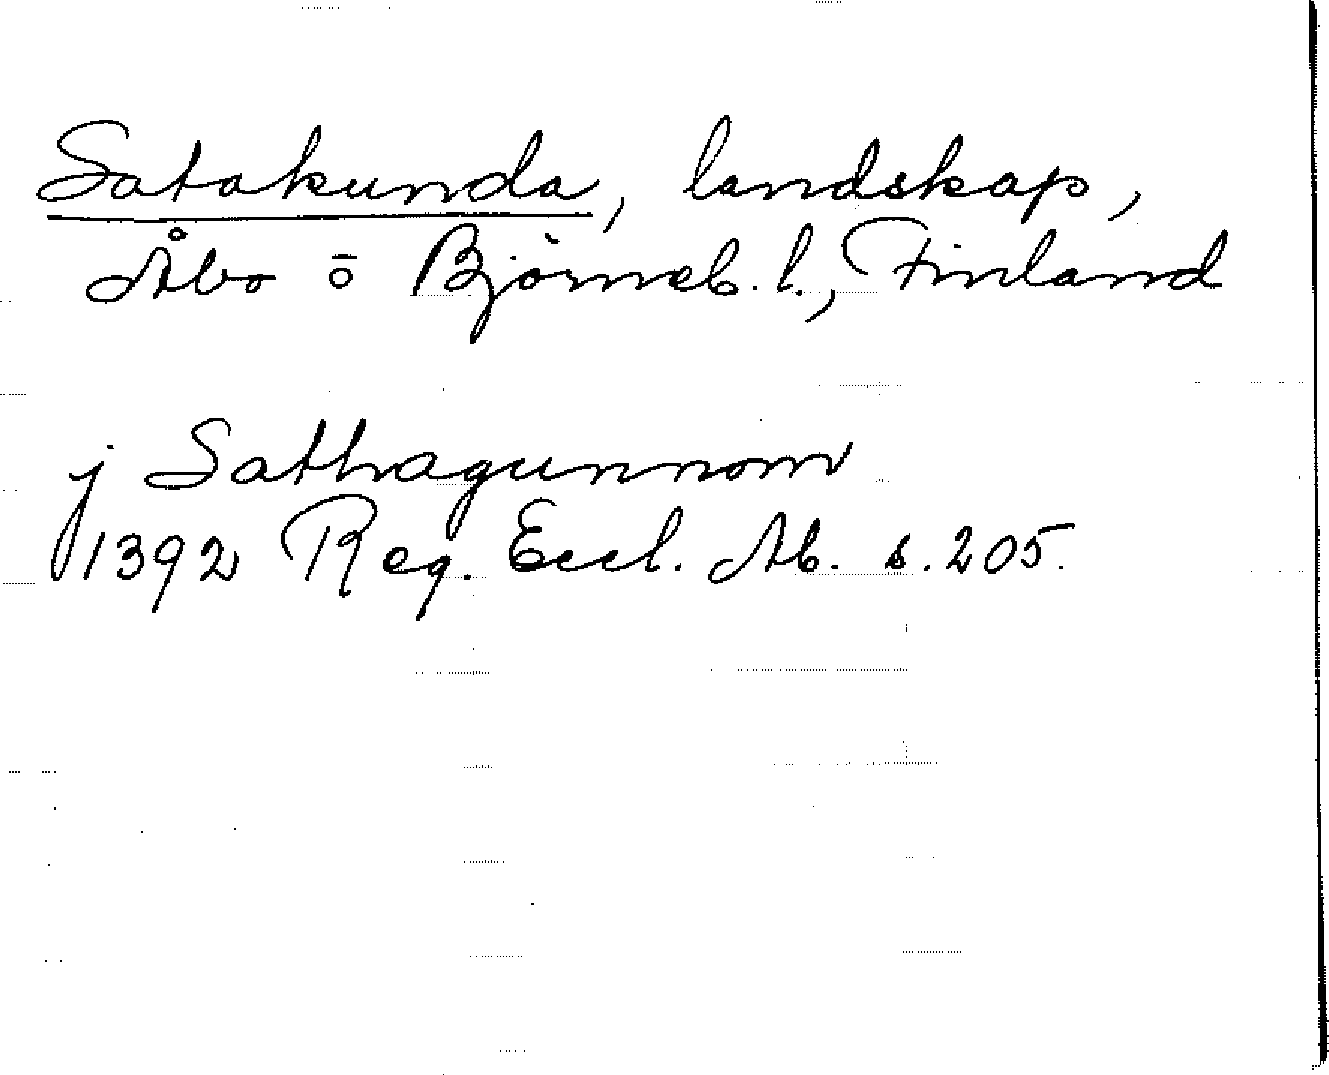 Satakunda, landskap,
Åbo ō Björneb. l., Finland
j Sathagunnom
1392 Reg. Eccl. Ab. s. 205.